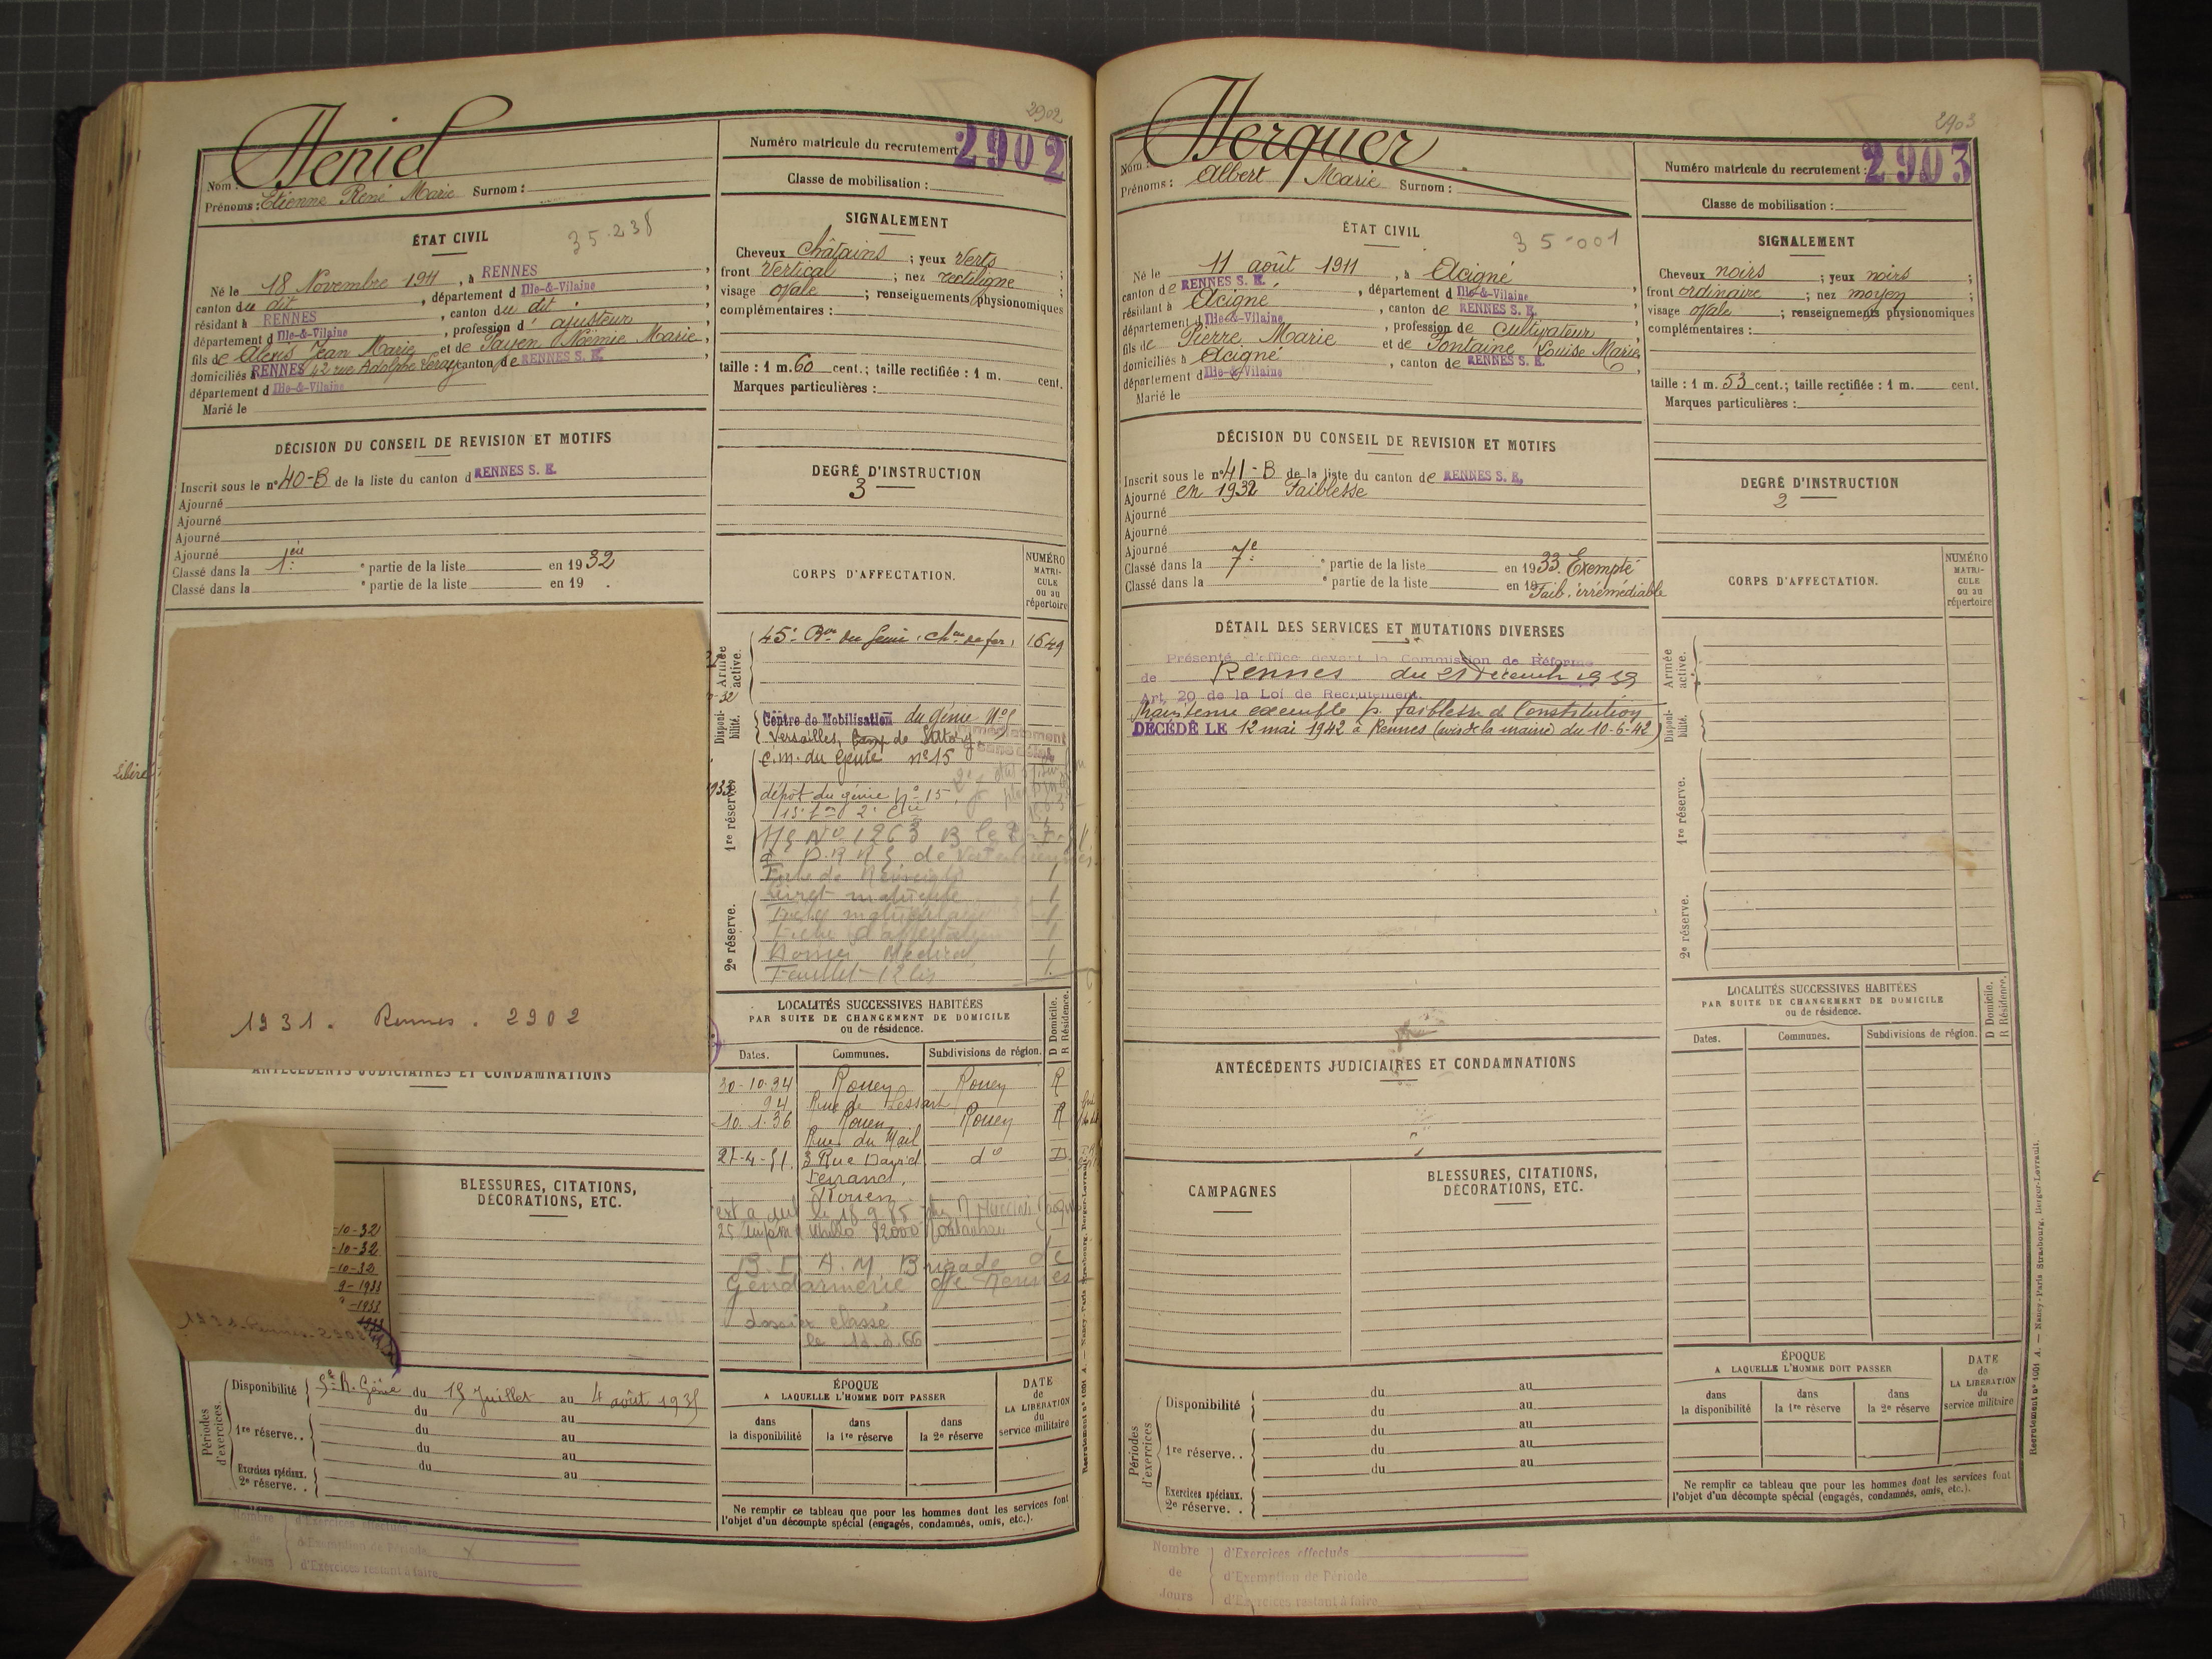 2902
Heniel
Nom :
Prénoms : Etienne René Marie Surnom :
Numéro matricule du recrutement 2902
Classe de mobilisation :
ÉTAT CIVIL
35.238
Né le 18 Novembre 1911, à RENNES,
canton du dit, département d Ille-&-Vilaine,
résidant à RENNES, canton du dit,
département d Ille-&-Vilaine, profession d' ajusteur,
fils de Alexis Jean Marie et de Payen Noëmie Marie,
domiciliés à RENNES 42 rue Adolphe Leray canton de RENNES S. E.,
département d Ille-&-Vilaine
Marié le
SIGNALEMENT
Cheveux châtains ; yeux verts ;
front vertical ; nez rectiligne ;
visage ovale ; renseignements physionomiques
complémentaires :
taille : 1 m. 60 cent.; taille rectifiée : 1 m. cent.
Marques particulières :
DÉCISION DU CONSEIL DE REVISION ET MOTIFS
Inscrit sous le n° 40-B de la liste du canton d RENNES S. E.
Ajourné
Ajourné
Ajourné
Ajourné
Classé dans la 1ère partie de la liste en 1932
Classé dans la partie de la liste en 19 .
DEGRÉ D'INSTRUCTION
3
CORPS D'AFFECTATION.
NUMÉRO MATRI-CULE ou au répertoire
Armée active.
45e Bon du Génie, chin de fer, 1649
Disponi-bilité.
Centre de Mobilisation du génie N°5
Versailles, Camp de Satory
1re réserve.
C.m. du Génie n°15
dépôt du génie N° 15
N° 1263 B le
Livret matricule 1
2e réserve.
Fiche d'affectation 1
Feuillet 12 bis 1
Libéré
1931. Rennes. 2902
ANTÉCÉDENTS JUDICIAIRES ET CONDAMNATIONS
LOCALITÉS SUCCESSIVES HABITÉES
PAR SUITE DE CHANGEMENT DE DOMICILE
ou de résidence.
D Domicile. R Résidence.
Dates. Communes. Subdivisions de région.
30-10-34 Rouen Rouen R
94 Rue de Lessart
10.1.36 Rouen Rouen R
Rue du Mail
27-4-51. 3 Rue David do D
Ferrand,
Rouen
B. E. A. M. Brigade de
Gendarmerie de Rennes
dossier classé
BLESSURES, CITATIONS,
DÉCORATIONS, ETC.
-10-32
-10-32
-10-32
9-1933
-1933
1931. Rennes. 2902
Périodes d'exercices.
Disponibilité 5e R. Génie du 15 Juillet au 4 août 1935
du au
1re réserve.. du au
du au
Exercices spéciaux. du au
2e réserve. .
ÉPOQUE
A LAQUELLE L'HOMME DOIT PASSER
dans la disponibilité
dans la 1re réserve
dans la 2e réserve
DATE de LA LIBÉRATION du service militaire
Ne remplir ce tableau que pour les hommes dont les services font
l'objet d'un décompte spécial (engagés, condamnés, omis, etc.).
Nombre de Jours
d'Exercices effectués
d'Exemption de Période x
d'Exercices restant à faire
2903
Herquer
Nom :
Prénoms : Albert Marie Surnom :
Numéro matricule du recrutement : 2903
Classe de mobilisation :
ÉTAT CIVIL
35-001
Né le 11 août 1911, à Acigné,
canton de RENNES S. E., département d Ille-&-Vilaine,
résidant à Acigné, canton de RENNES S. E.,
département d Ille-&-Vilaine, profession de cultivateur,
fils de Pierre, Marie et de Fontaine, Louise Marie,
domiciliés à Acigné, canton de RENNES S. E.,
département d Ille-&-Vilaine
Marié le
SIGNALEMENT
Cheveux noirs ; yeux noirs ;
front ordinaire ; nez moyen ;
visage ovale ; renseignements physionomiques
complémentaires :
taille : 1 m. 53 cent.; taille rectifiée : 1 m. cent.
Marques particulières :
DÉCISION DU CONSEIL DE REVISION ET MOTIFS
Inscrit sous le n° 41-B de la liste du canton de RENNES S. E.
Ajourné en 1932 Faiblesse
Ajourné
Ajourné
Ajourné
Classé dans la 7e partie de la liste en 1933. Exempté
Classé dans la partie de la liste en 19 Faib. irrémédiable
DEGRÉ D'INSTRUCTION
2
CORPS D'AFFECTATION.
NUMÉRO MATRI-CULE ou au répertoire
DÉTAIL DES SERVICES ET MUTATIONS DIVERSES
Présenté d'office devant la Commission de Réforme
de Rennes du 21 Décemb 1939
Art. 20 de la Loi de Recrutement.
Maintenu exempté p. faiblesse de Constitution
DÉCÉDÉ LE 12 mai 1942 à Rennes (avis de la mairie du 10-6-42)
Armée active.
Disponi-bilité.
1re réserve.
2e réserve.
LOCALITÉS SUCCESSIVES HABITÉES
PAR SUITE DE CHANGEMENT DE DOMICILE
ou de résidence.
D Domicile. R Résidence.
Dates. Communes. Subdivisions de région.
ANTÉCÉDENTS JUDICIAIRES ET CONDAMNATIONS
CAMPAGNES
BLESSURES, CITATIONS,
DÉCORATIONS, ETC.
Périodes d'exercices
Disponibilité du au
du au
1re réserve.. du au
du au
Exercices spéciaux. du au
2e réserve. .
ÉPOQUE
A LAQUELLE L'HOMME DOIT PASSER
dans la disponibilité
dans la 1re réserve
dans la 2e réserve
DATE de LA LIBÉRATION du service militaire
Ne remplir ce tableau que pour les hommes dont les services font
l'objet d'un décompte spécial (engagés, condamnés, omis, etc.).
Recrutement n° 1001 A. — Nancy-Paris Strasbourg, Berger-Levrault.
Nombre de Jours
d'Exercices effectués
d'Exemption de Période
d'Exercices restant à faire